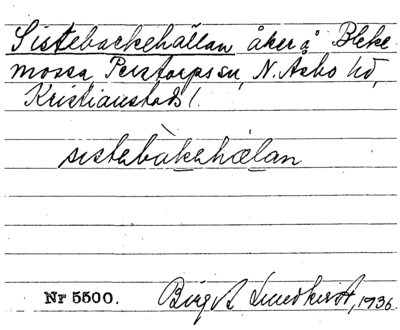 Sistebackehällan åker å Bleke-
mossa, Perstorps sn, N. Asbo hd,
Kristianstads l.
sistebàkehælan
Nr 5500. Birgit Lundkvist, 1936.